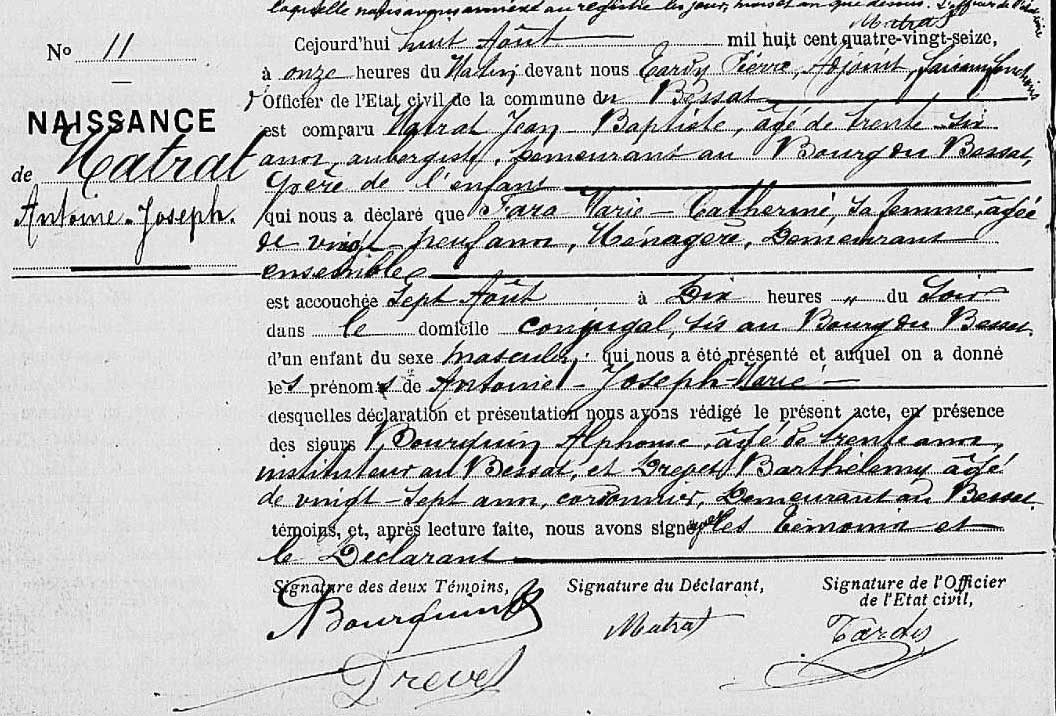 laquelle nous avons annexé au registre les jour, mois et an que dessus. L'officier de l'état civil
Matrat
N° 11
NAISSANCE
de Matrat
Antoine-Joseph.
Cejourd'hui huit Août mil huit cent quatre-vingt-seize,
à onze heures du Matin devant nous Tardy Pierre, Adjoint,
Officier de l'Etat civil de la commune du Bessat
est comparu Matrat Jean-Baptiste, âgé de trente-six
ans, aubergiste, Demeurant au Bourg du Bessat,
père de l'enfant
qui nous a déclaré que Fara Marie-Catherine, sa femme, âgée
de vingt-neuf ans, Ménagère, Demeurant
ensemble
est accouchée Sept Août à Dix heures " du Soir
dans le domicile conjugal, sis au Bourg du Bessat.
d'un enfant du sexe masculin, qui nous a été présenté et auquel on a donné
les prénoms de Antoine-Joseph-Marie
desquelles déclaration et présentation nous avons rédigé le présent acte, en présence
des sieurs Bourguin Alphonse, âgé de trente ans,
instituteur au Bessat, et Drevet Barthélemy âgé
de vingt-sept ans, cordonnier, Demeurant au Bessat
témoins, et, après lecture faite, nous avons signé avec les témoins et
le Déclarant
Signature des deux Témoins,
Signature du Déclarant,
Signature de l'Officier
de l'Etat civil,
Bourguin
Matrat
Tardy
Drevet